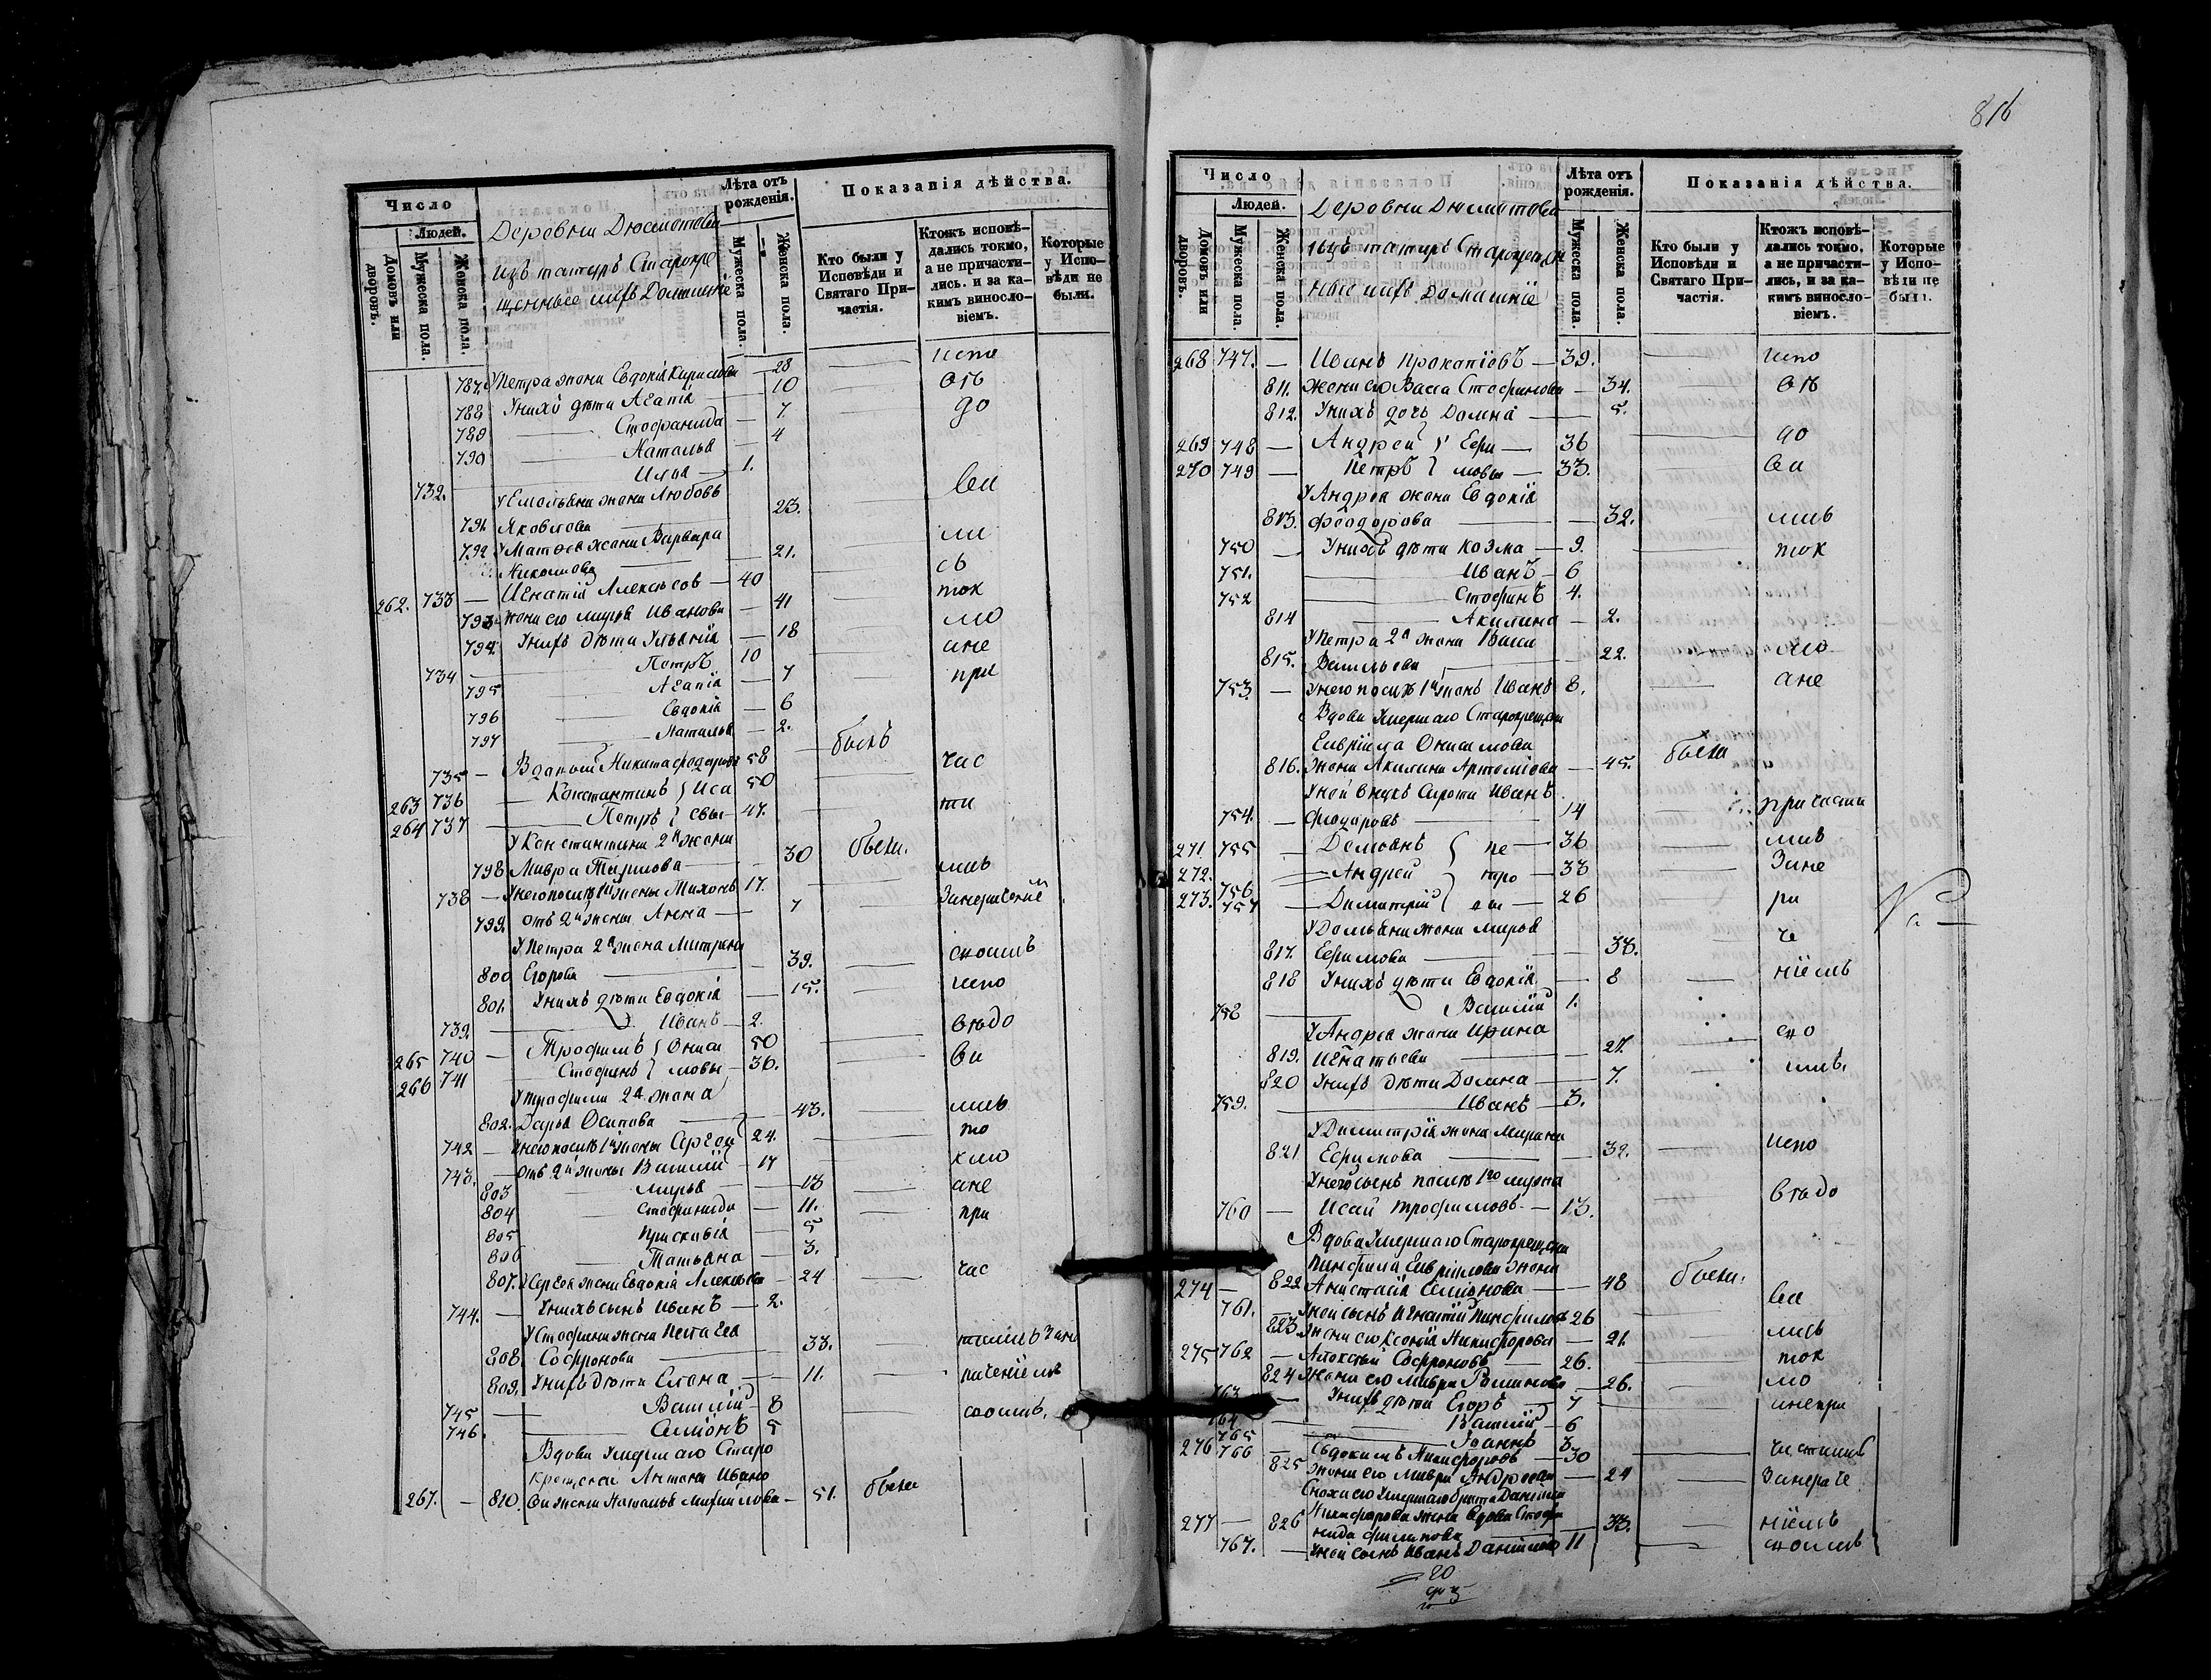 816
Число
Людей.
Домовъ или дворовъ.
Мужеска пола.
Женска пола.
Деревни Дюсметева
изъ татаръ Старокре
щенные ихъ Домашніе
Лѣта отъ рожденія.
Мужеска пола.
Женска пола.
Показанія дѣйства.
Кто были у Исповѣди и Святаго Причастія.
Ктожъ исповѣдались токмо, а не причастились. и за какимъ винословіемъ.
Которые у Исповѣди не были.
787. У Петра жена Евдокія Кирилова — 28 — испо
788 У нихъ дѣти Агапія — 10 — вѣ
789 — Стефанида — 7 — до
790 — Наталья — 4
732. Илья — 1. ва
У Емельяна жена Любовь
791. Яковлева — 23.
792 У Матвея жена Варвара ли
Николаева — 21. сь
262. 733 — Игнатій Алексѣевъ — 40 ток
793 Жена его Марья Иванова — 41 мо
794. У нихъ дѣти Ульянія — 18 ане
734 — Петръ 10
795 Агапія — 7 при
796 — Евдокія — 6
797 — Наталья — 2.
735 — Вдовый Никита Федоровъ 58 былъ
263 736 — Константинъ } Иса 50 час
264 737 — Петръ } евы — 47. ти
У Константина 2я жена
798 Мавра — 30 была.
738 — У него послѣ 1й жены Тихонъ 17. лись
799. отъ 2й жены Анна — 7 Занераченіе
У Петра 2я жена Матрена
800 Егорова — 39. — споимъ
801. У нихъ дѣти Евдокія — 15. — испо
739. — Иванъ — 2.
265 740 — Трофимъ } Ониси 50 вѣдо
266 741 Стефанъ } мовы — 36. ва
У Трофима 2я жена
802. Дарья Осипова — 43. лись
742 — У него послѣ 1й жены Сергей 24. то
743. — отъ 2й жены Василій — 17 кмо
803 Марья — 13 ане
804 Стефанида — 11. при
805 Прасковія — 5
806 — Татьяна — 3.
807. У Сергея жена Евдокія Алексѣева — 24 час
744. — У нихъ сынъ Иванъ — 2.
У Стефана жена Пелагея
808. Софронова — 33. тились Зане
809. У нихъ дѣти Елена — 11. раченіемъ
745 — Василій — 8 споимъ.
746. — Семіонъ 5
Вдова Умершаго Старо
крещена Антона Ивано
267. — 810. ва жена Наталья Михайлова — 51. была
Число
Людей.
Домовъ или дворовъ.
Мужеска пола.
Женска пола.
Деревни Дюсметева
изъ татаръ Старокрещен
ные ихъ Домашніе
Лѣта отъ рожденія.
Мужеска пола.
Женска пола.
Показанія дѣйства.
Кто были у Исповѣди и Святаго Причастія.
Ктожъ исповѣдались токмо, а не причастились, и за какимъ винословіемъ.
Которые у Исповѣди не были.
268 747. — Иванъ Прокопіевъ — 39. испо
811. Жена его Васса Стефанова — 34. вѣ
812. У нихъ дочь Домна — 5.
269 748 — Андрей } Ефи — 36 до
270 749 — Петръ } мовы — 33. ва
У Андрея жена Евдокія
813. Феодорова — 32. лись
750 — У нихъ дѣти Козма — 9. ток
751. — Иванъ — 6
752 — Стефанъ 4.
814 — Акилина — 2.
У Петра 2я жена Васса
815. Васильева — 22. мо
753. — У него послѣ 1й жены Иванъ 8. ане
Вдова Умершаго Старокрещена
Гавріила Онисимова
816. жена Акилина Артеміева — 45. была
У ней внукъ Сирота Иванъ
754. — Феодоровъ — 14 причасти
271. 755 — Демьянъ } пе — 36 лись
272. 756 — Андрей } тро — 33 Зане
273. 757 — Димитрій } вы — 26 ра
У Демьяна жена Марья
817. Ефимова — 33. че
818 У нихъ дѣти Евдокія — 8 ніемъ
758 — Василій 1.
У Андрея жена Ирина
819. Игнатьева — 27. спо
820 У нихъ дѣти Домна — 7. имъ.
759. — Иванъ — 3.
У Димитрія жена Марина
821 Ефимова — 32. испо
У него сынъ послѣ 1го мужа
760 — Исай Трофимовъ — 13. вѣдо
Вдова Умершаго Старокрещена
Панфила Гавриилова жена
274 — 822 Анастасія Семіонова — 48 была. ва
761. У ней сынъ Игнатій Панфиловъ 26
823. Жена его Ксенія Никифорова — 21. лись
275 762 — Алексѣй Софроновъ — 26. ток
824 Жена его Мавра Романова — 26. мо
763 — У нихъ дѣти Егоръ — 7 анепри
764 Василій — 6
765 Іоаннъ 3
276 766 — Евдокимъ Никифоровъ — 30 частились
825 жена его Мавра Андреева — 24 Занераче
Сноха его Умершаго брата Даніила
277 — 826 Никифорова жена вдова Стефа
нида Филипова — 33. ніемъ
767. — У ней сынъ Иванъ Даніиловъ 11 споимъ
20